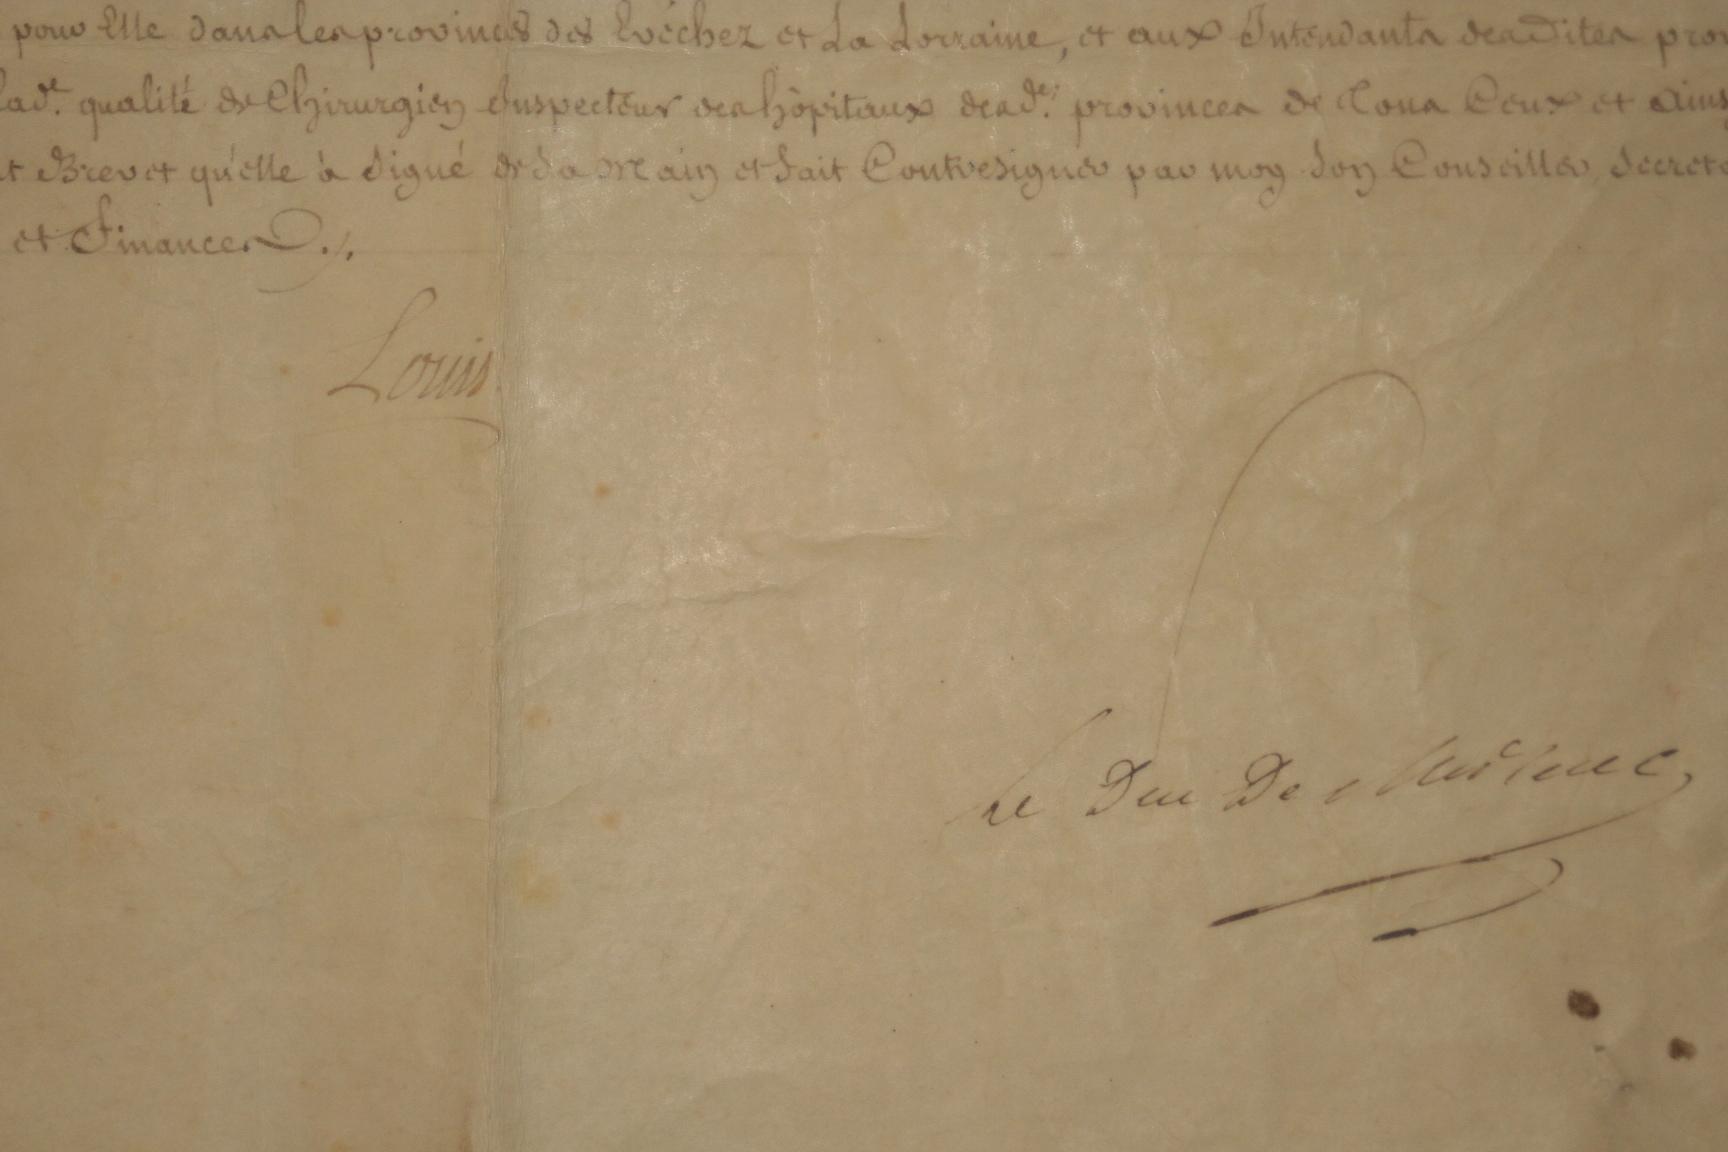 pour Elle dans les provinces des Evêchez et La Lorraine, et aux Intendants desdites prov
lad.e qualité de Chirurgien Inspecteur des hôpitaux desd.es provinces de Tous Ceux et Ains
t Brevet qu'elle à Signé de Sa Main et fait Contresigner par moy Son Conseiller Secreta
et Finances ./.
Louis
Le Duc De